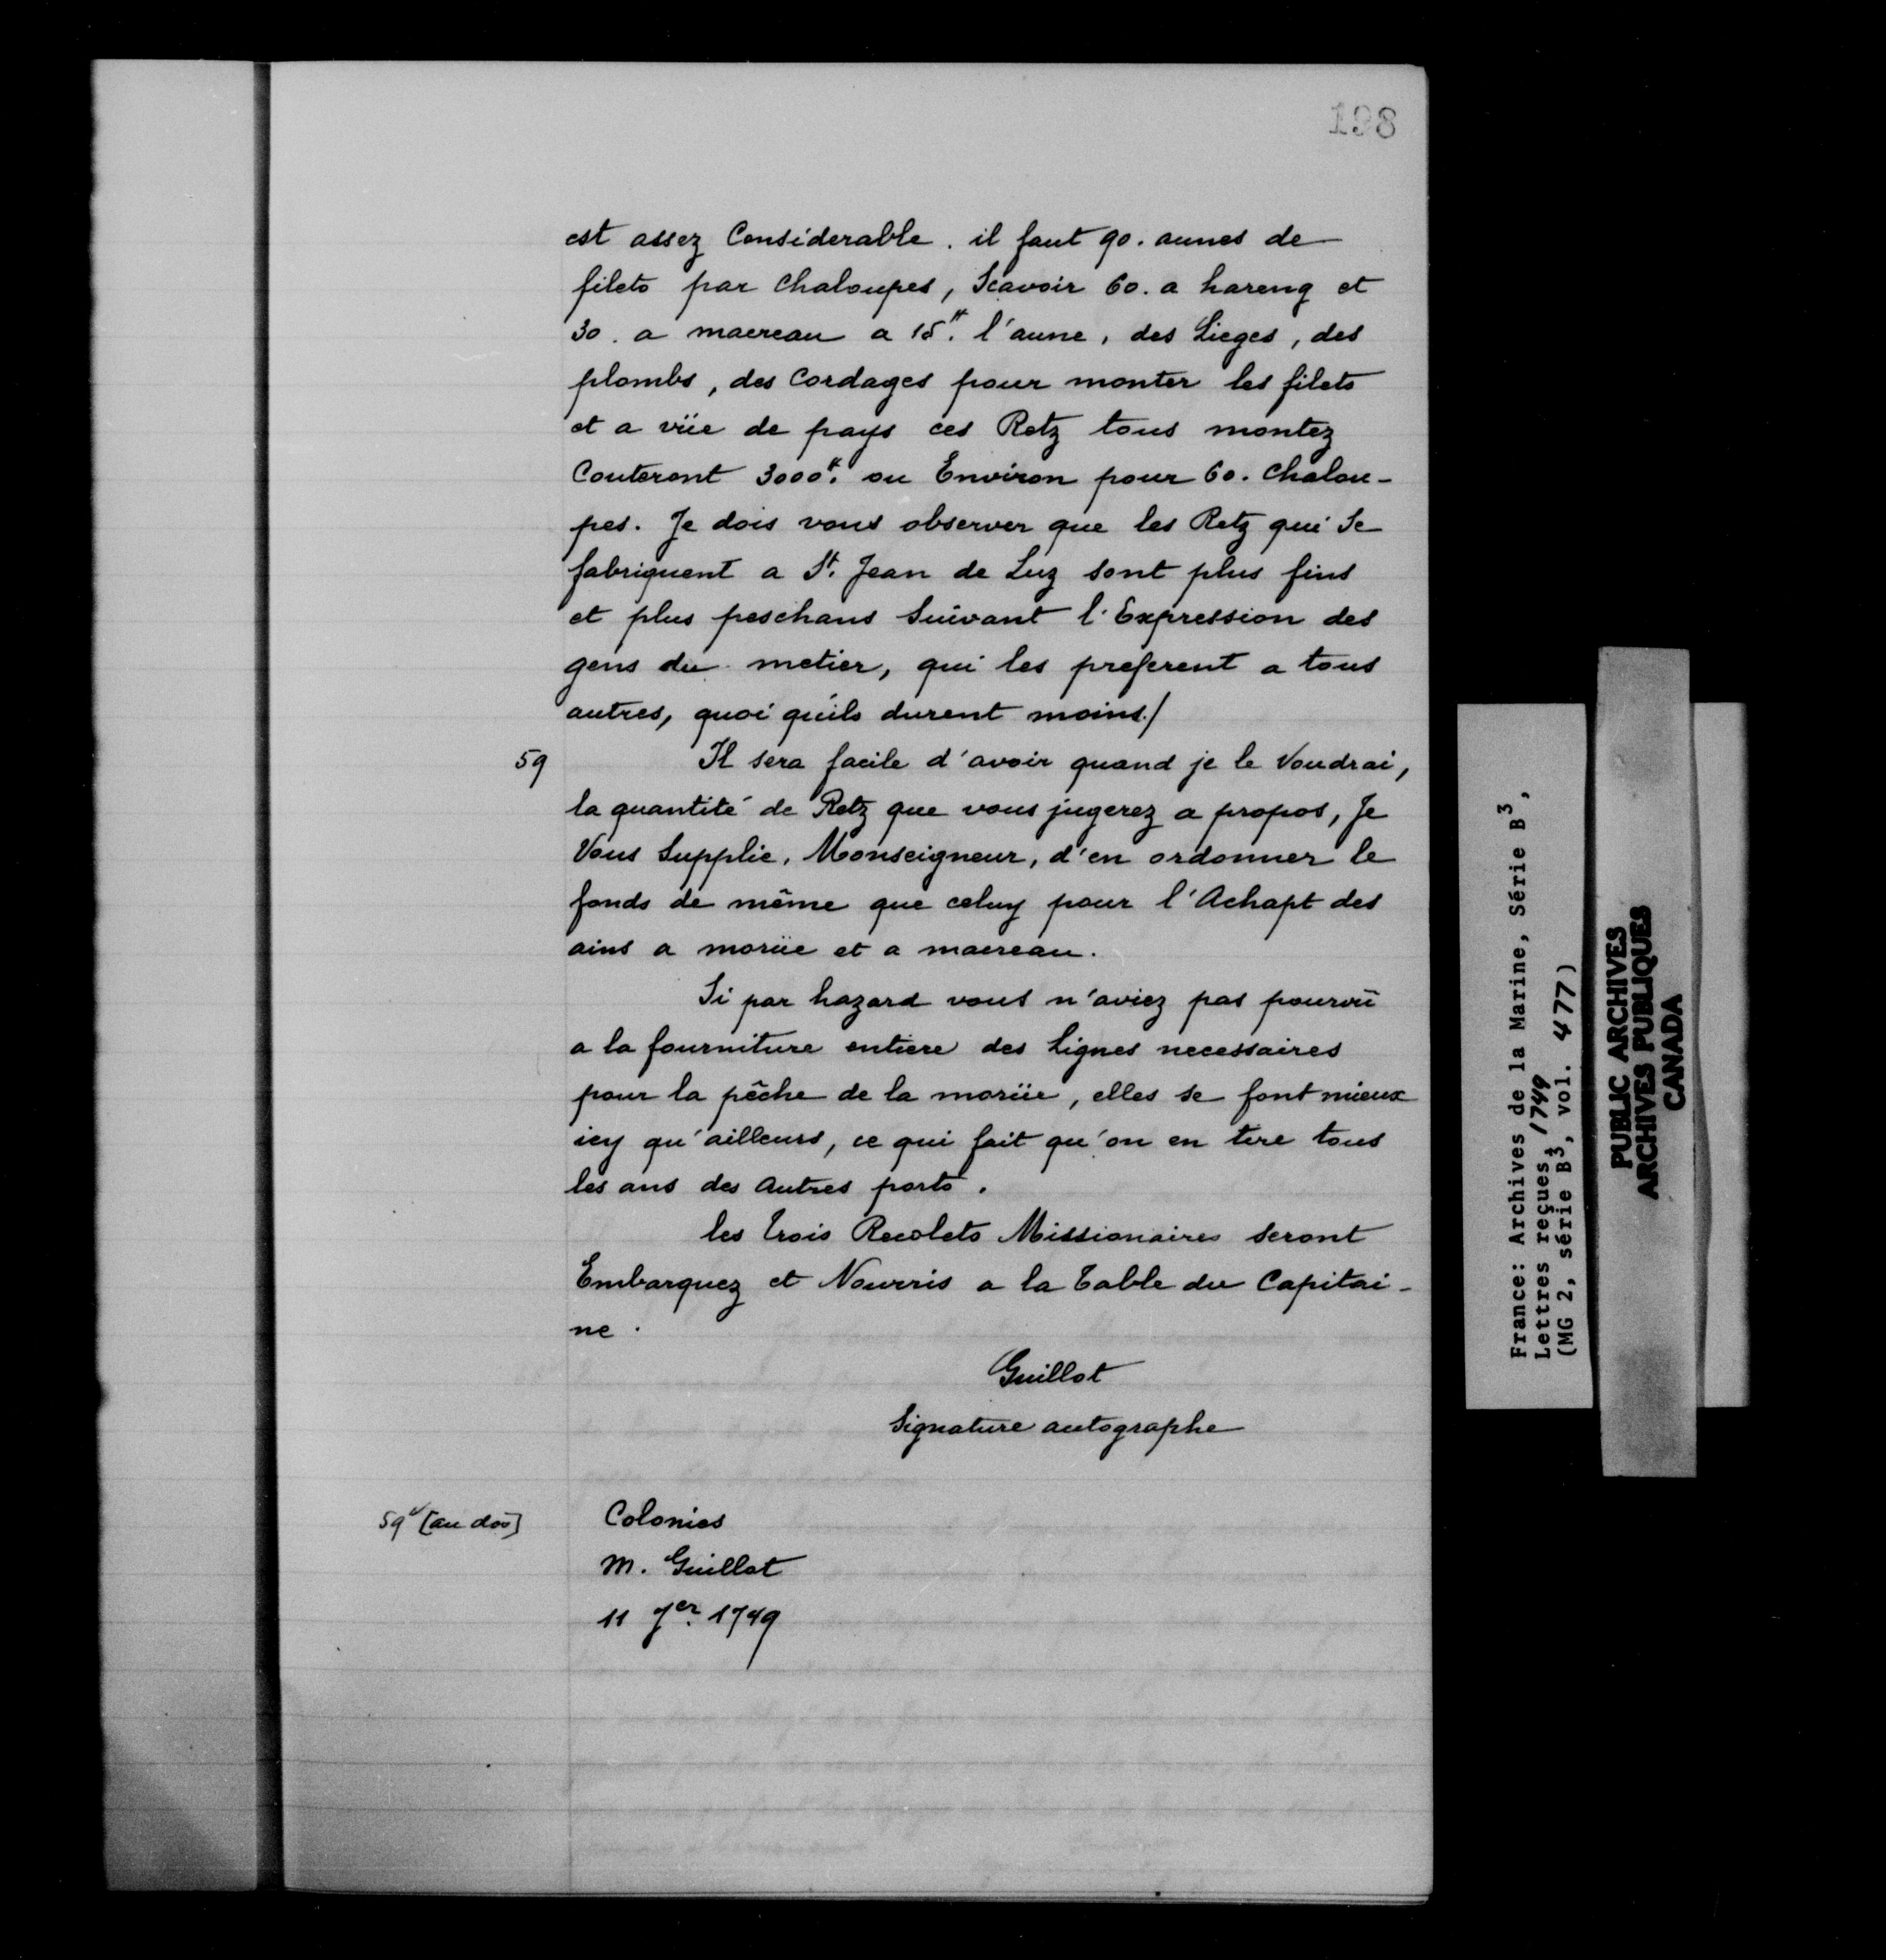 198
est assez Considerable. il faut 90. aunes de
filets par Chaloupes, Scavoir 60. a hareng et
30. a macreau a 15ᵗᵗ. l'aune, des Lieges, des
plombs, des Cordages pour monter les filets
et a vüe de pays ces Retz tous montez
Couteront 3000ᵗᵗ. ou Environ pour 60. Chalou-
pes. Je dois vous observer que les Retz qui Se
fabriquent a St. Jean de Luz sont plus fins
et plus peschans Suivant l'Expression des
gens du metier, qui les preferent a tous
autres, quoi qu'ils durent moins./
59 Il sera facile d'avoir quand je le Voudrai,
la quantité de Retz que vous jugerez a propos, Je
Vous Supplie, Monseigneur, d'en ordonner le
fonds de même que celuy pour l'Achapt des
ains a morüe et a macreau.
Si par hazard vous n'aviez pas pourvû
a la fourniture entiere des Lignes necessaires
pour la pêche de la morüe, elles se font mieux
icy qu'ailleurs, ce qui fait qu'on en tire tous
les ans des Autres ports.
les trois Recolets Missionaires seront
Embarquez et Nourris a la table du Capitai-
ne.
Guillot
Signature autographe
59ᵛ [au dos] Colonies
M. Guillot
11 jer. 1749
France: Archives de la Marine, Série B3,
Lettres reçues, 1749
(MG 2, série B3, vol. 477)
PUBLIC ARCHIVES
ARCHIVES PUBLIQUES
CANADA